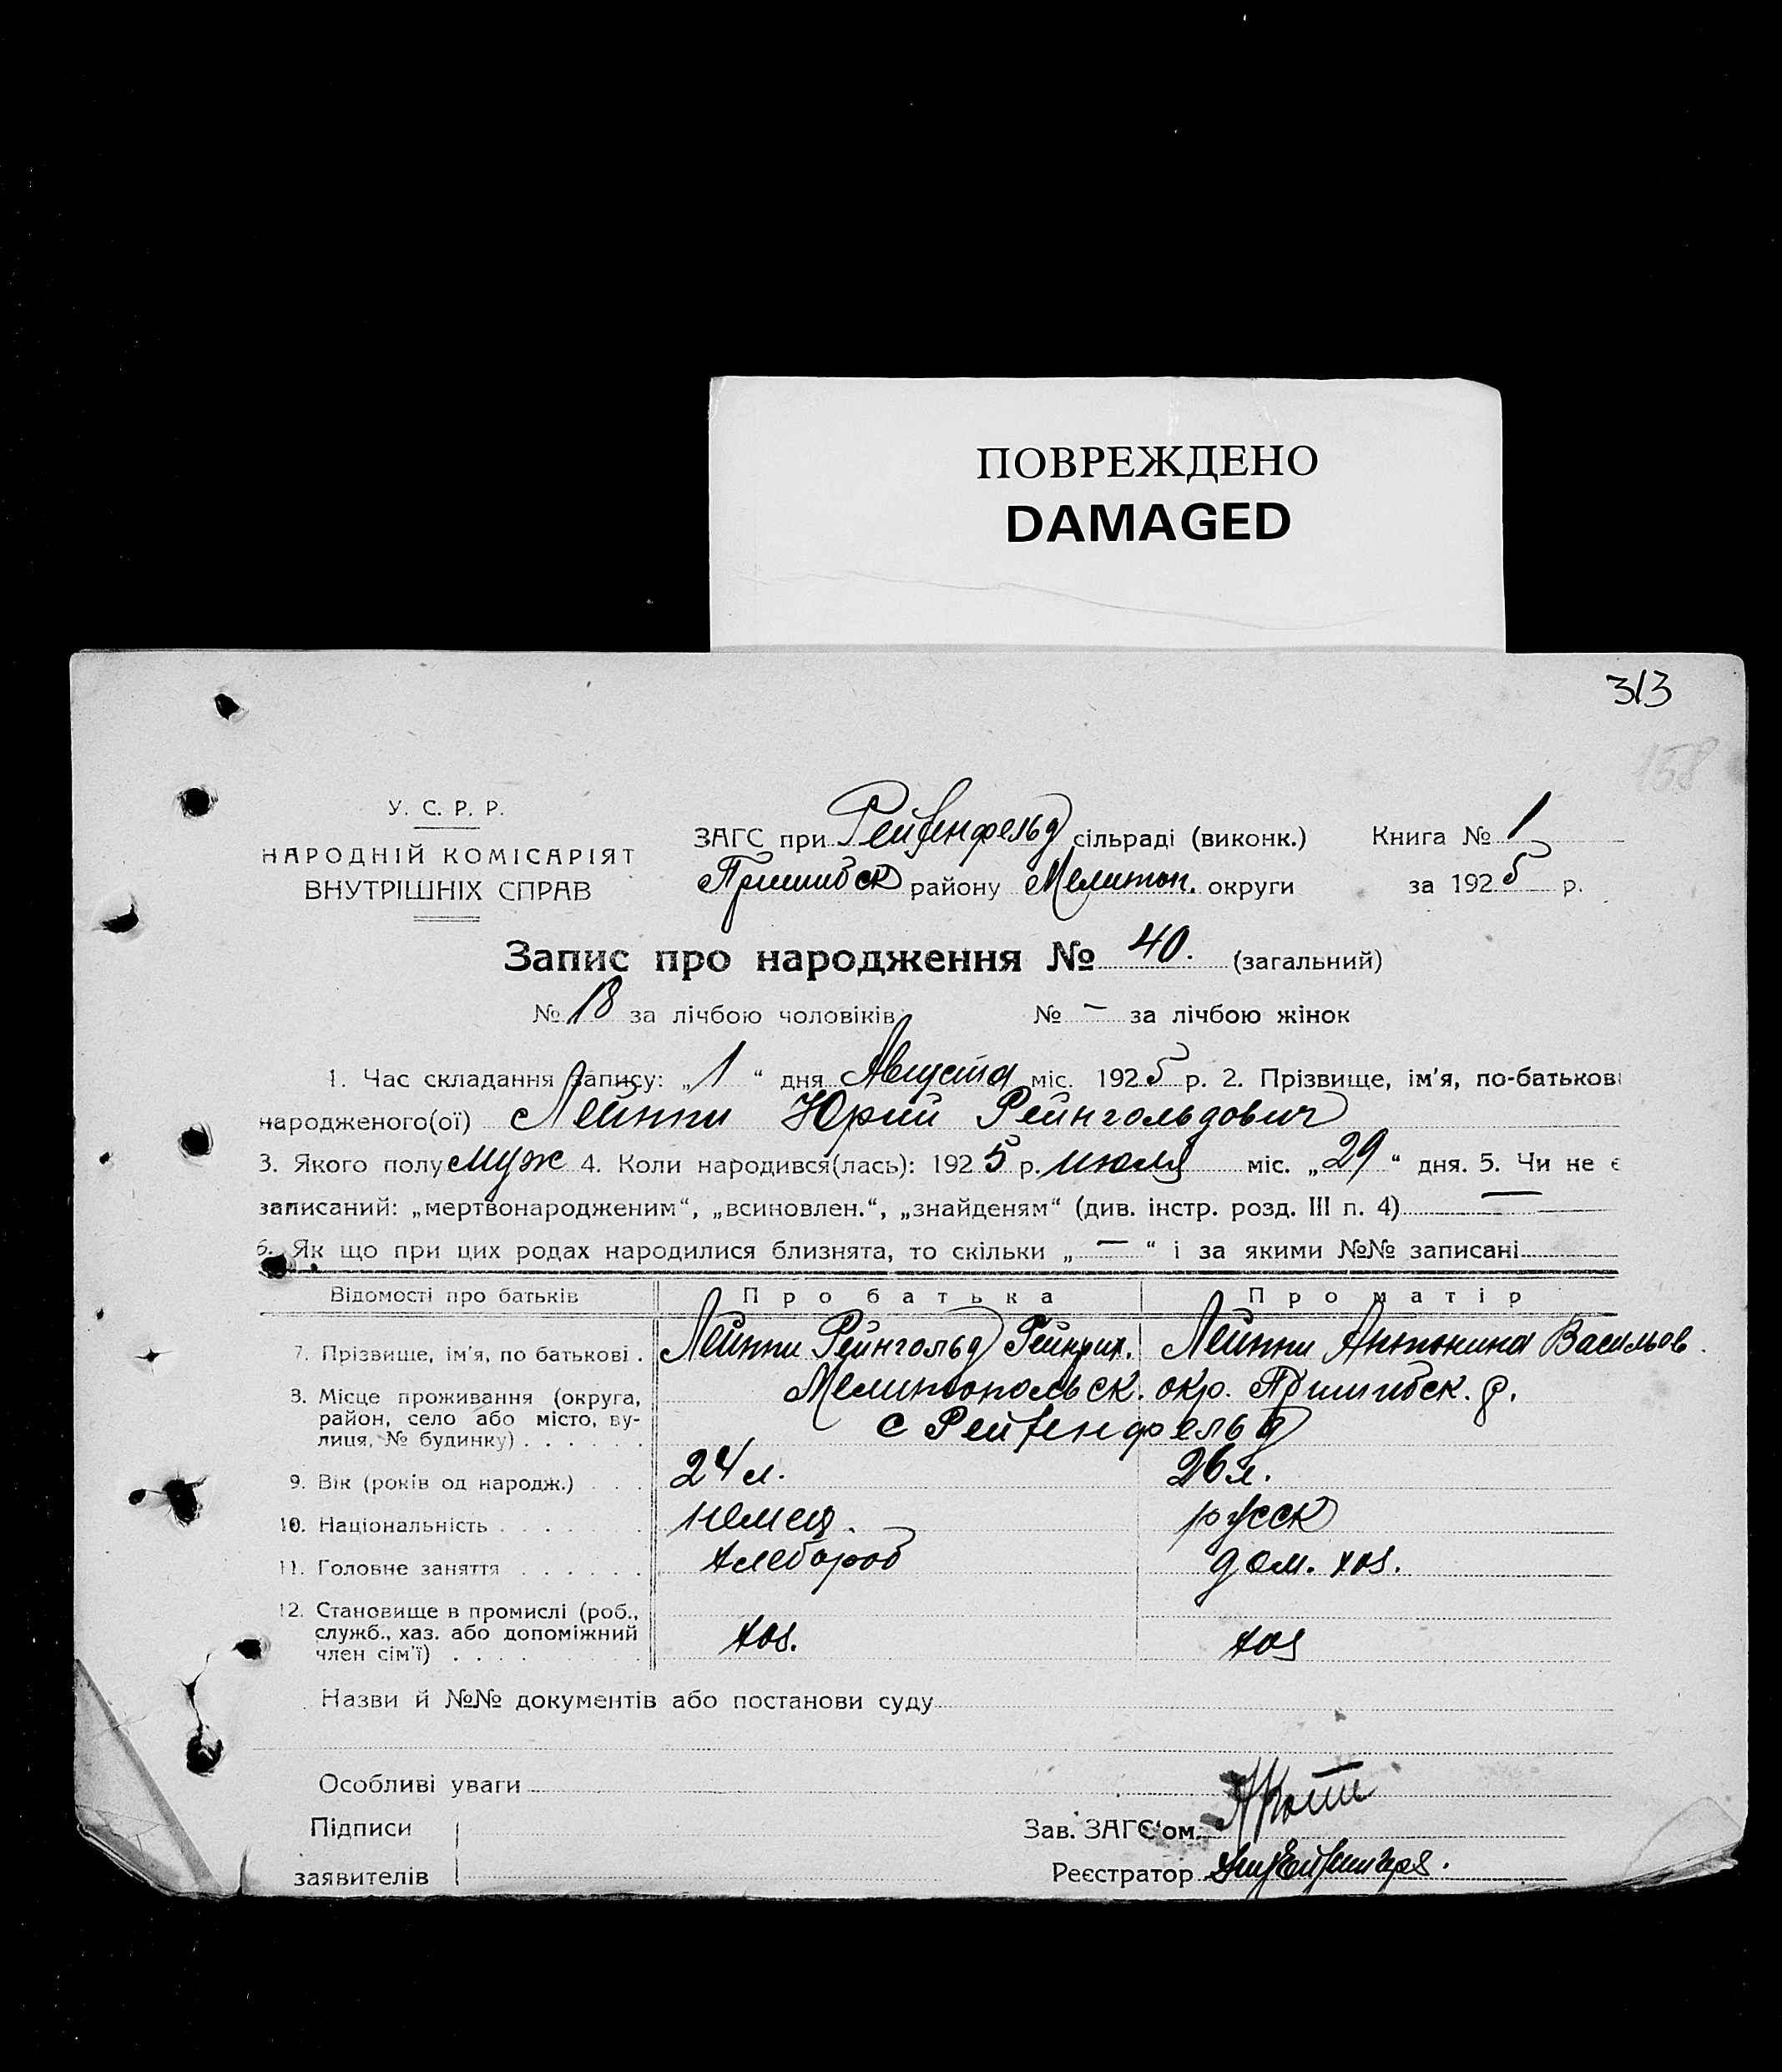 ПОВРЕЖДЕНО
DAMAGED
313
158
У. С. Р. Р.
НАРОДНІЙ КОМІСАРІЯТ
ВНУТРІШНІХ СПРАВ
ЗАГС при Рейхенфельд сільраді (виконк.) Книга № 1
Пришибск району Мелитоп. округи за 1925 р.
Запис про народження № 40. (загальний)
№ 18 за лічбою чоловіків № — за лічбою жінок
1. Час складання запису: „1“ дня Августа міс. 1925 р. 2. Прізвище, ім'я, по-батькові
народженого(ої) Лейппи Юрий Рейнгольдович
3. Якого полу муж 4. Коли народився(лась): 1925 р. июля міс. „29“ дня. 5. Чи не є
записаний: „мертвонародженим“, „всиновлен.“, „знайденям“ (див. інстр. розд. III п. 4) —
6. Як що при цих родах народилися близнята, то скільки „—“ і за якими №№ записані
Відомості про батьків Про батька Про матір
7. Прізвище, ім'я, по батькові . Лейппи Рейнгольд Гейнрих. Лейппи Антонина Васильов.
8. Місце проживання (округа, Мелитопольск. окр. Пришибск. р.
район, село або місто, ву- с Рейхенфельд
лиця, № будинку) . . . . . .
9. Вік (років од народж.) . . . 24 л. 26 л.
10. Національність . . . . . . немец. русск
11. Головне заняття . . . . . . хлебороб дом. хоз.
12. Становище в промислі (роб.,
служб., хаз. або допоміжний хоз. хоз
член сім'ї) . . . .
Назви й №№ документів або постанови суду
Особливі уваги
Підписи Зав. ЗАГС'ом
заявителів Реєстратор